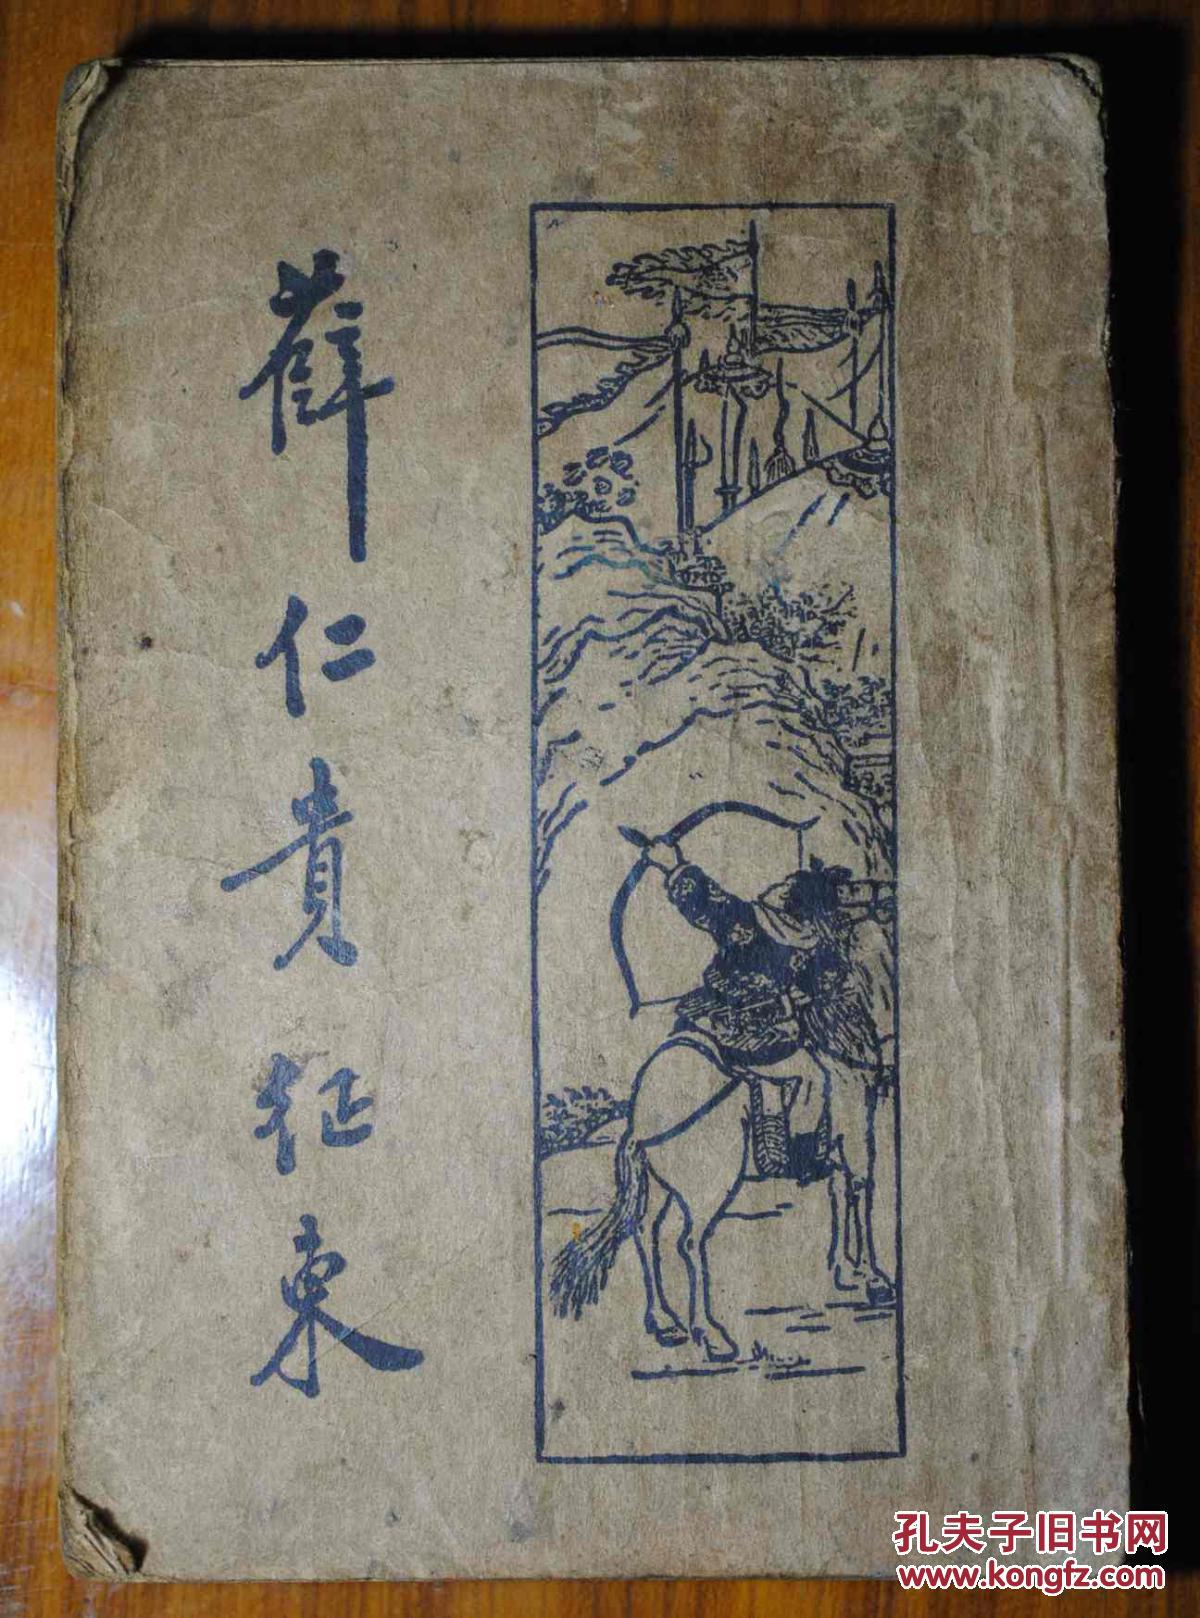 薛仁貴征東
孔夫子旧书网
www.kongfz.com